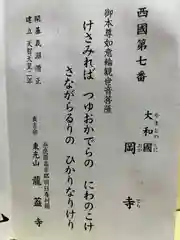 西國第七番
大和國
やまとのくに
岡寺
御本尊如意輪観世音菩薩
けさみれば つゆおかでらの にわのこけ
さながらるりの ひかりなりけり
開基 義淵僧正
建立 天智天皇二年
奈良県高市郡明日香村岡
真言宗
東光山 龍蓋寺